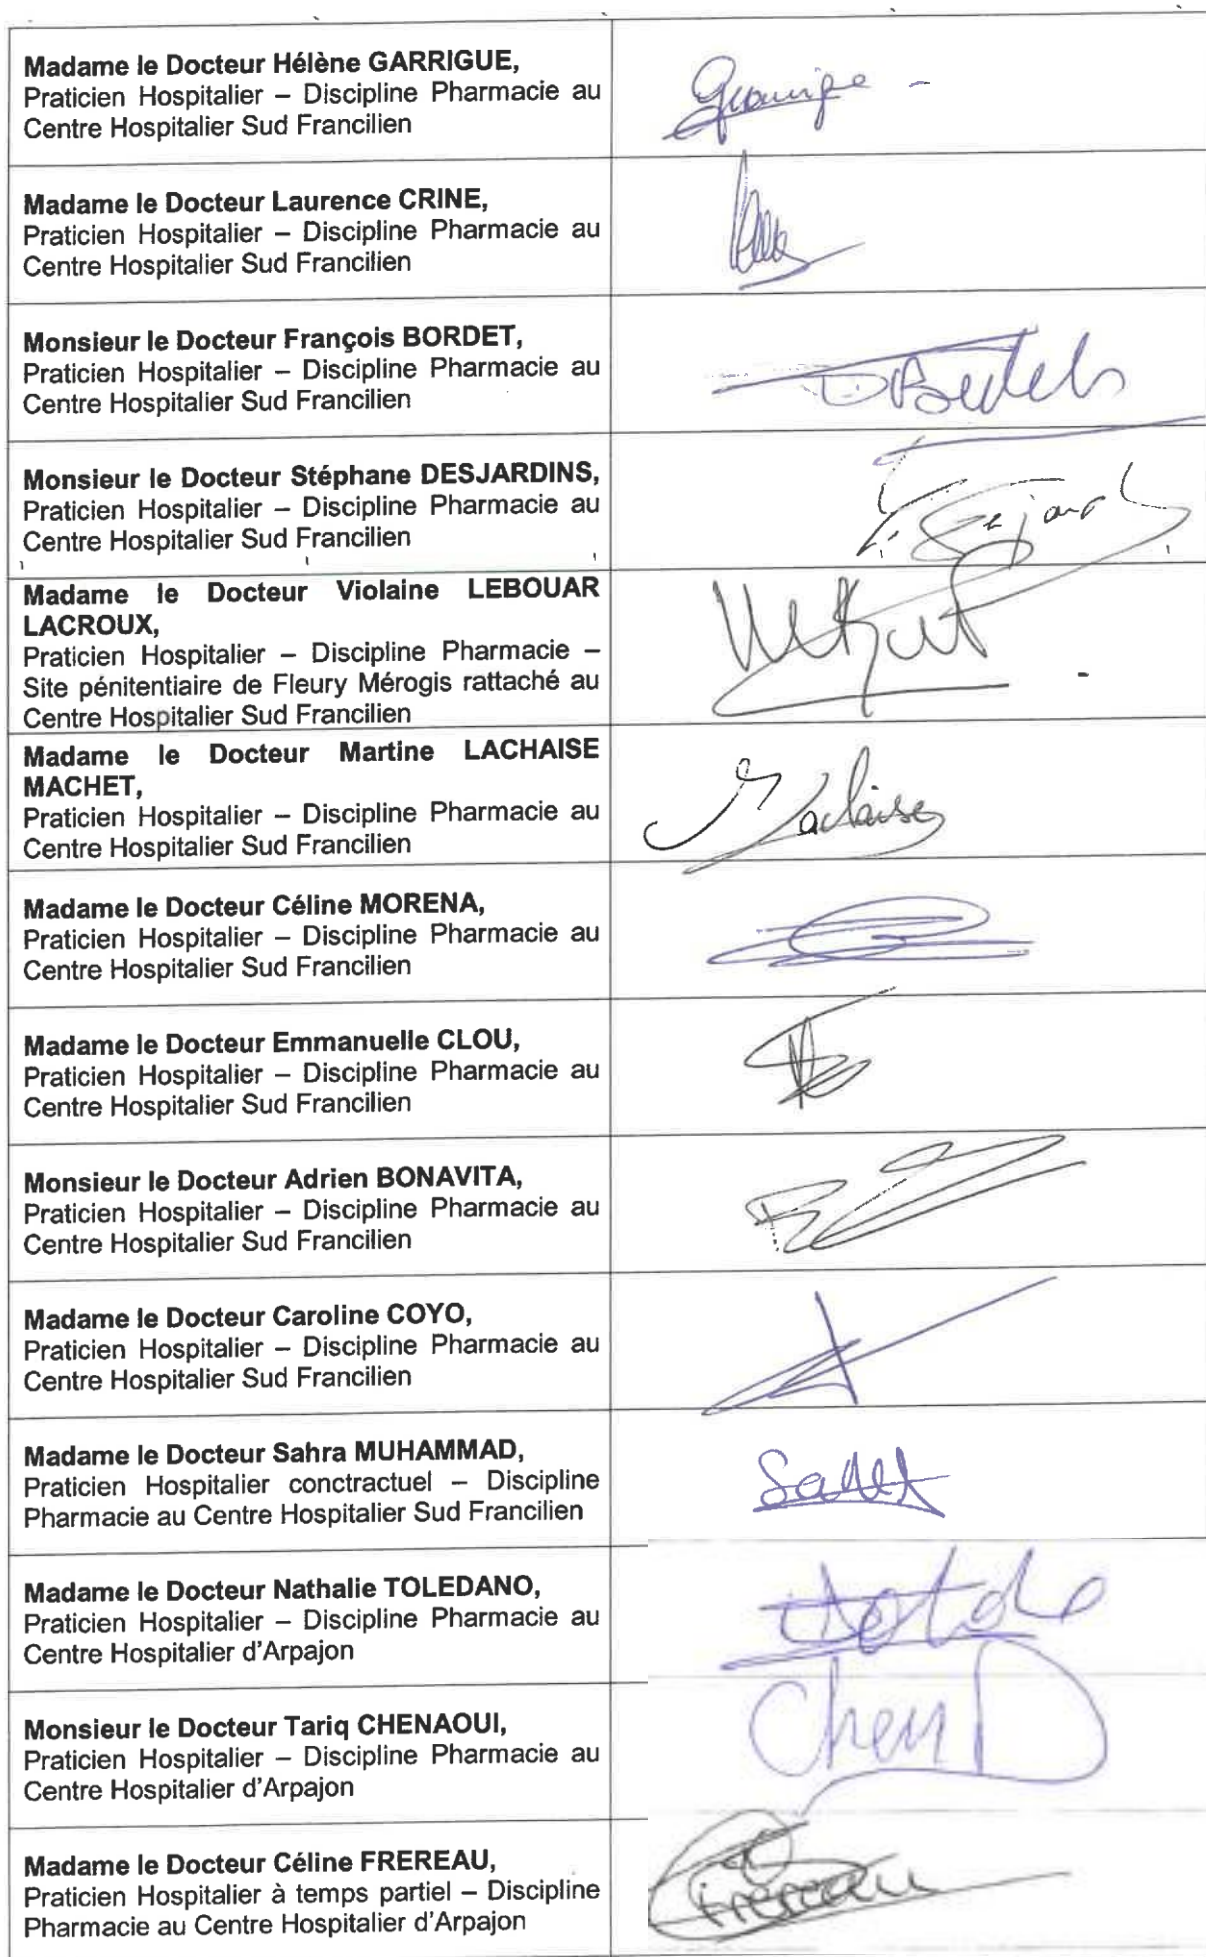 Madame le Docteur Hélène GARRIGUE,
Praticien Hospitalier – Discipline Pharmacie au
Centre Hospitalier Sud Francilien
Madame le Docteur Laurence CRINE,
Praticien Hospitalier – Discipline Pharmacie au
Centre Hospitalier Sud Francilien
Monsieur le Docteur François BORDET,
Praticien Hospitalier – Discipline Pharmacie au
Centre Hospitalier Sud Francilien
Monsieur le Docteur Stéphane DESJARDINS,
Praticien Hospitalier – Discipline Pharmacie au
Centre Hospitalier Sud Francilien
Madame le Docteur Violaine LEBOUAR
LACROUX,
Praticien Hospitalier – Discipline Pharmacie –
Site pénitentiaire de Fleury Mérogis rattaché au
Centre Hospitalier Sud Francilien
Madame le Docteur Martine LACHAISE
MACHET,
Praticien Hospitalier – Discipline Pharmacie au
Centre Hospitalier Sud Francilien
Madame le Docteur Céline MORENA,
Praticien Hospitalier – Discipline Pharmacie au
Centre Hospitalier Sud Francilien
Madame le Docteur Emmanuelle CLOU,
Praticien Hospitalier – Discipline Pharmacie au
Centre Hospitalier Sud Francilien
Monsieur le Docteur Adrien BONAVITA,
Praticien Hospitalier – Discipline Pharmacie au
Centre Hospitalier Sud Francilien
Madame le Docteur Caroline COYO,
Praticien Hospitalier – Discipline Pharmacie au
Centre Hospitalier Sud Francilien
Madame le Docteur Sahra MUHAMMAD,
Praticien Hospitalier conctractuel – Discipline
Pharmacie au Centre Hospitalier Sud Francilien
Madame le Docteur Nathalie TOLEDANO,
Praticien Hospitalier – Discipline Pharmacie au
Centre Hospitalier d'Arpajon
Monsieur le Docteur Tariq CHENAOUI,
Praticien Hospitalier – Discipline Pharmacie au
Centre Hospitalier d'Arpajon
Madame le Docteur Céline FREREAU,
Praticien Hospitalier à temps partiel – Discipline
Pharmacie au Centre Hospitalier d'Arpajon
Frereau